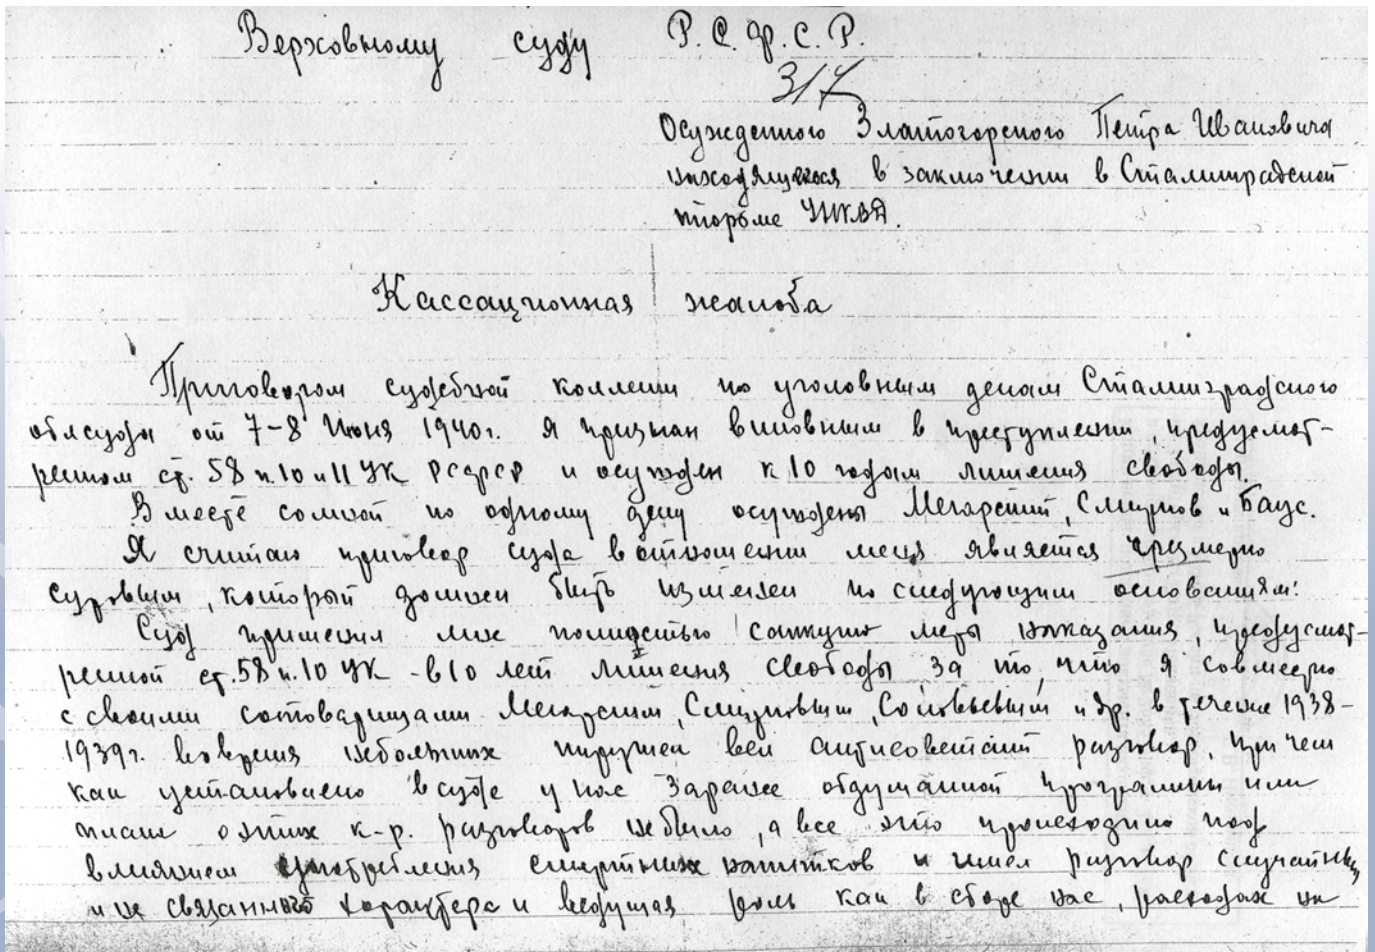 Верховному суду Р.С.Ф.С.Р.
317
Осужденного Златогорского Петра Ивановича
находящегося в заключении в Сталинградской
тюрьме УНКВД.
Кассационная жалоба
Приговором судебной коллегии по уголовным делам Сталинградского
облсуда от 7-8 Июня 1940г. я признан виновным в преступлении, предусмот-
ренном ст. 58 п.10 и 11 УК РСФСР и осужден к 10 годам лишения свободы.
Вместе со мной по одному делу осуждены Мегарский, Смирнов и Баус.
Я считаю приговор суда в отношении меня является чрезмерно
суровым, который должен быть изменен по следующим основаниям:
Суд применил мне полностью санкцию меры наказания, предусмот-
ренной ст.58 п.10 УК - в 10 лет лишения свободы за то, что я совместно
с своими сотоварищами Мегарским, Смирновым, Соловьевым и др. в течение 1938-
1939г. во время небольших пирушек вел антисоветский разговор, при чем
как установлено в суде у нас заранее обдуманной программы или
плана о этих к-р. разговоров не было, а все это происходило под
влиянием употребления спиртных напитков и имел разговор случайный
и не связанный характера и ведущая роль как в сборе нас, расходах на